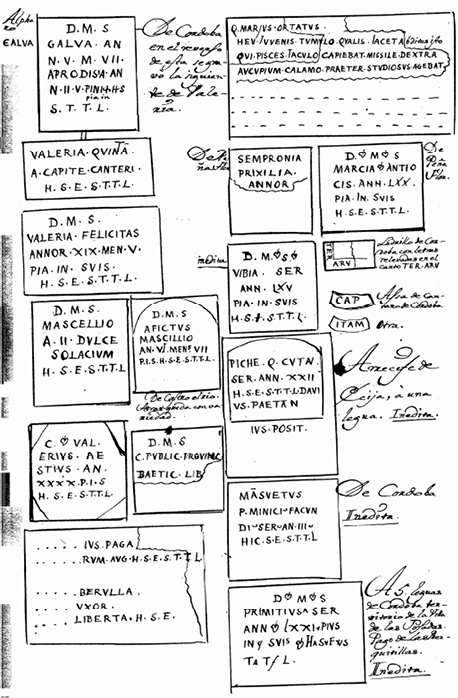 D. M. S
GALVA. AN
N. V. M. VII
APRODISIA. AN
N. II. V. PINI. H. S
S. T. T. L.
De Cordoba
en el reverso
de esta se
vó la siguien
te de Vale
ria.
Q. MARIUS. ORTATUS.
HEV. IVVENIS. TVMVLO. QVALIS. IACET. A
QVI. PISCES. IACVLO. CAPIEBAT. MISSILE. DEXTRA
AVCVPIVM. CALAMO. PRAETER. STUDIOSUS. AGEBAT.
VALERIA. QVINTA
A. CAPITE. CANTERI.
H. S. E. S. T. T. L.
SEMPRONIA
PRIXILIA.
ANNOR.
D. M. S
MARCIA ANTIO
CIS. ANN. LXX.
PIA. IN. SVIS
H. S. E. S. T. T. L.
De
Peña
Flor.
D. M. S.
VALERIA. FELICITAS
ANNOR. XIX. MEN. V.
PIA. IN. SVIS.
H. S. E. S. T. T. L
inedita
D. M. S
VIBIA. SER
ANN. LXV
PIA. IN. SVIS
H. S. E. S. T. T. L
ARV
Ladrillo de Cor
doba con letras
relevadas en el
canto TER. ARV
CAP
Asa de Can
taro de Cordoba
ITAM
Otra.
D. M. S
MASCELLIO
A. II. DVLCE
SOLACIUM
H. S. E. S. T. T. L
D. M. S
AFICTVS
MASCILLIO
AN. VI. MENS. VII
P. I. S. H. S. E. S. T. T. L
De Castro el rio
PICHE. Q. CVTN.
SER. ANN. XXII
H. S. E. S. T. T. L DAVI
VS. PAETAN
IVS. POSIT.
Arrecife de
Ecija, à una
legua. Inedita.
C. VAL
ERIVS. AE
STIVS. AN.
XXXX. P. I. S
H. S. E. S. T. T. L.
D. M. S
C. PVBLIC. PROVINC
BAETIC. LIB
MASVETVS
P. MINICI FACVN
DI SER. AN. III
HIC. S. E. S. T. T. L
De Cordoba
Inedita.
..... IVS. PAGA
..... RVM. AVG. H. S. E. S. T. T. L
..... BERVLLA.
..... VXOR.
..... LIBERTA. H. S. E.
D M S
PRIMITIVSA SER
ANN LXXI. PIVS
IN SVIS
A 5. leguas
de Cordoba ter
ritorio de la Villa
de las Posadas.
Pago de las
Inedita.